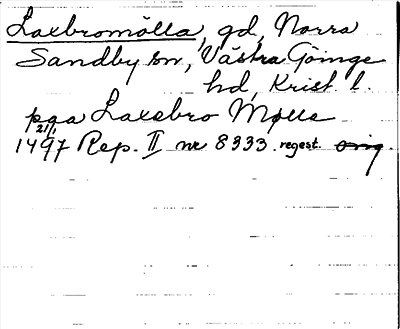 Laxbromölla, gd, Norra
Sandby sn, Västra Göinge
hd, Krist. l.
pga Laxebro Mølle
21/1
1497 Rep. II nr 8333 regest. orig.